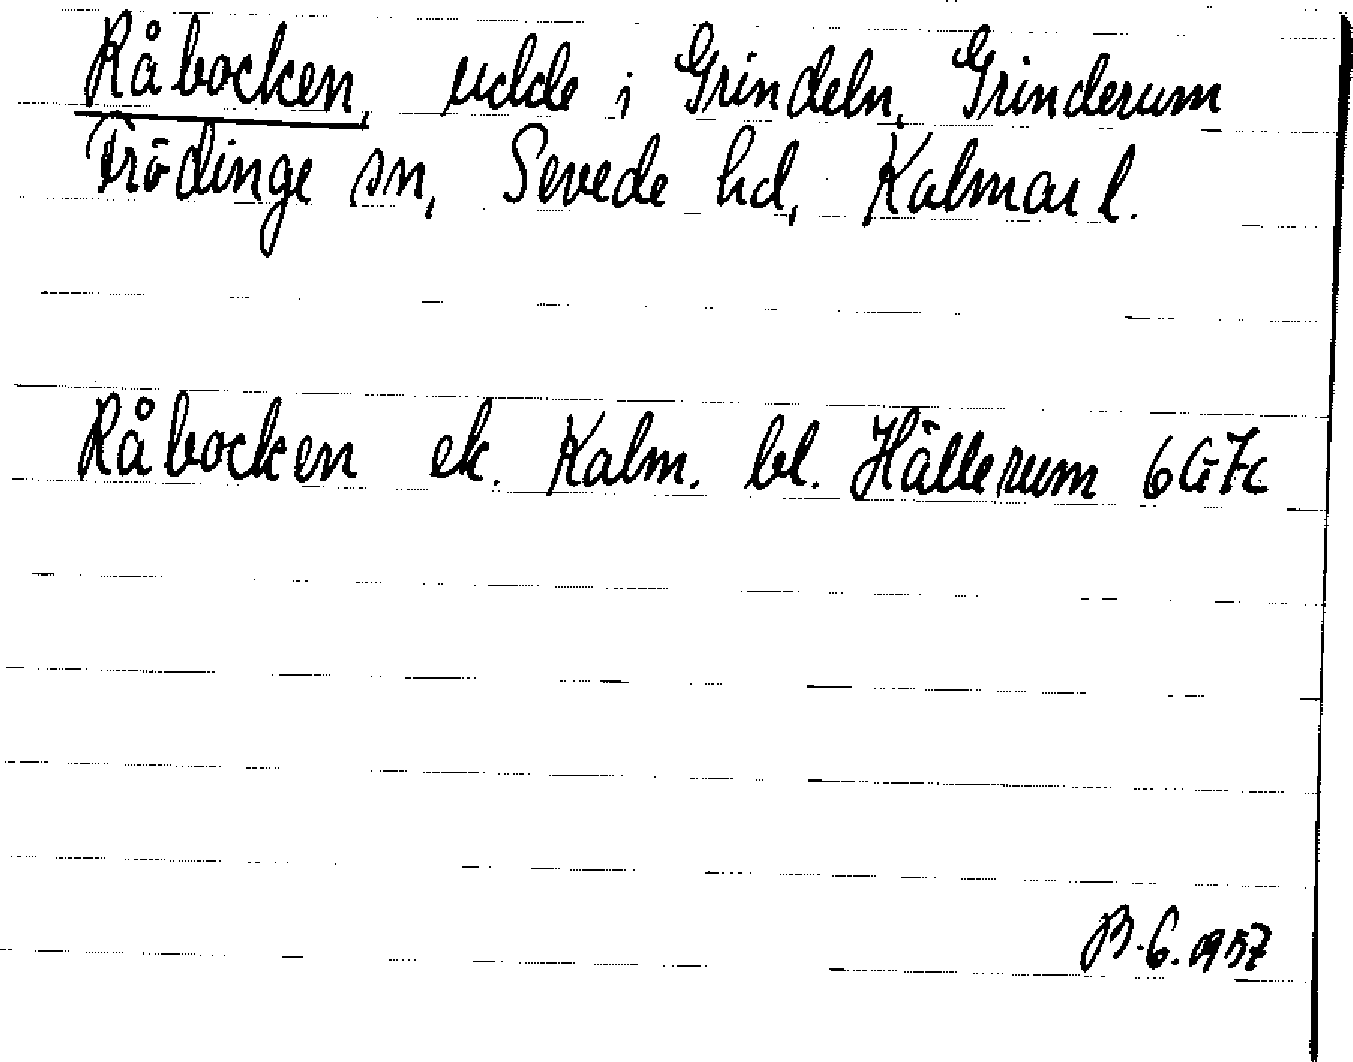 Råbocken, udde i Grindeln, Grinderum
Frödinge sn, Sevede hd, Kalmar l.
Råbocken ek. Kalm. bl. Hällerum 6G7c
B. G. 1957